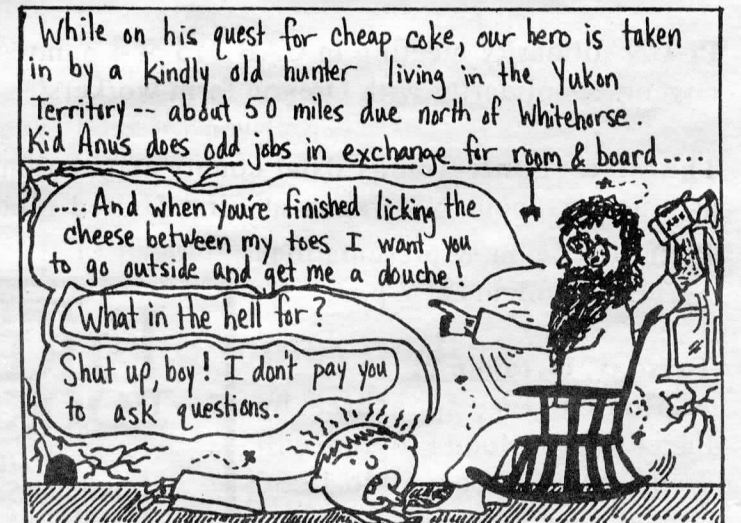 While on his quest for cheap coke, our hero is taken
in by a kindly old hunter living in the Yukon
Territory-- about 50 miles due north of Whitehorse.
Kid Anus does odd jobs in exchange for room & board----
....And when you're finished licking the
cheese between my toes I want you
to go outside and get me a douche!
What in the hell for?
Shut up, boy! I don't pay you
to ask questions.